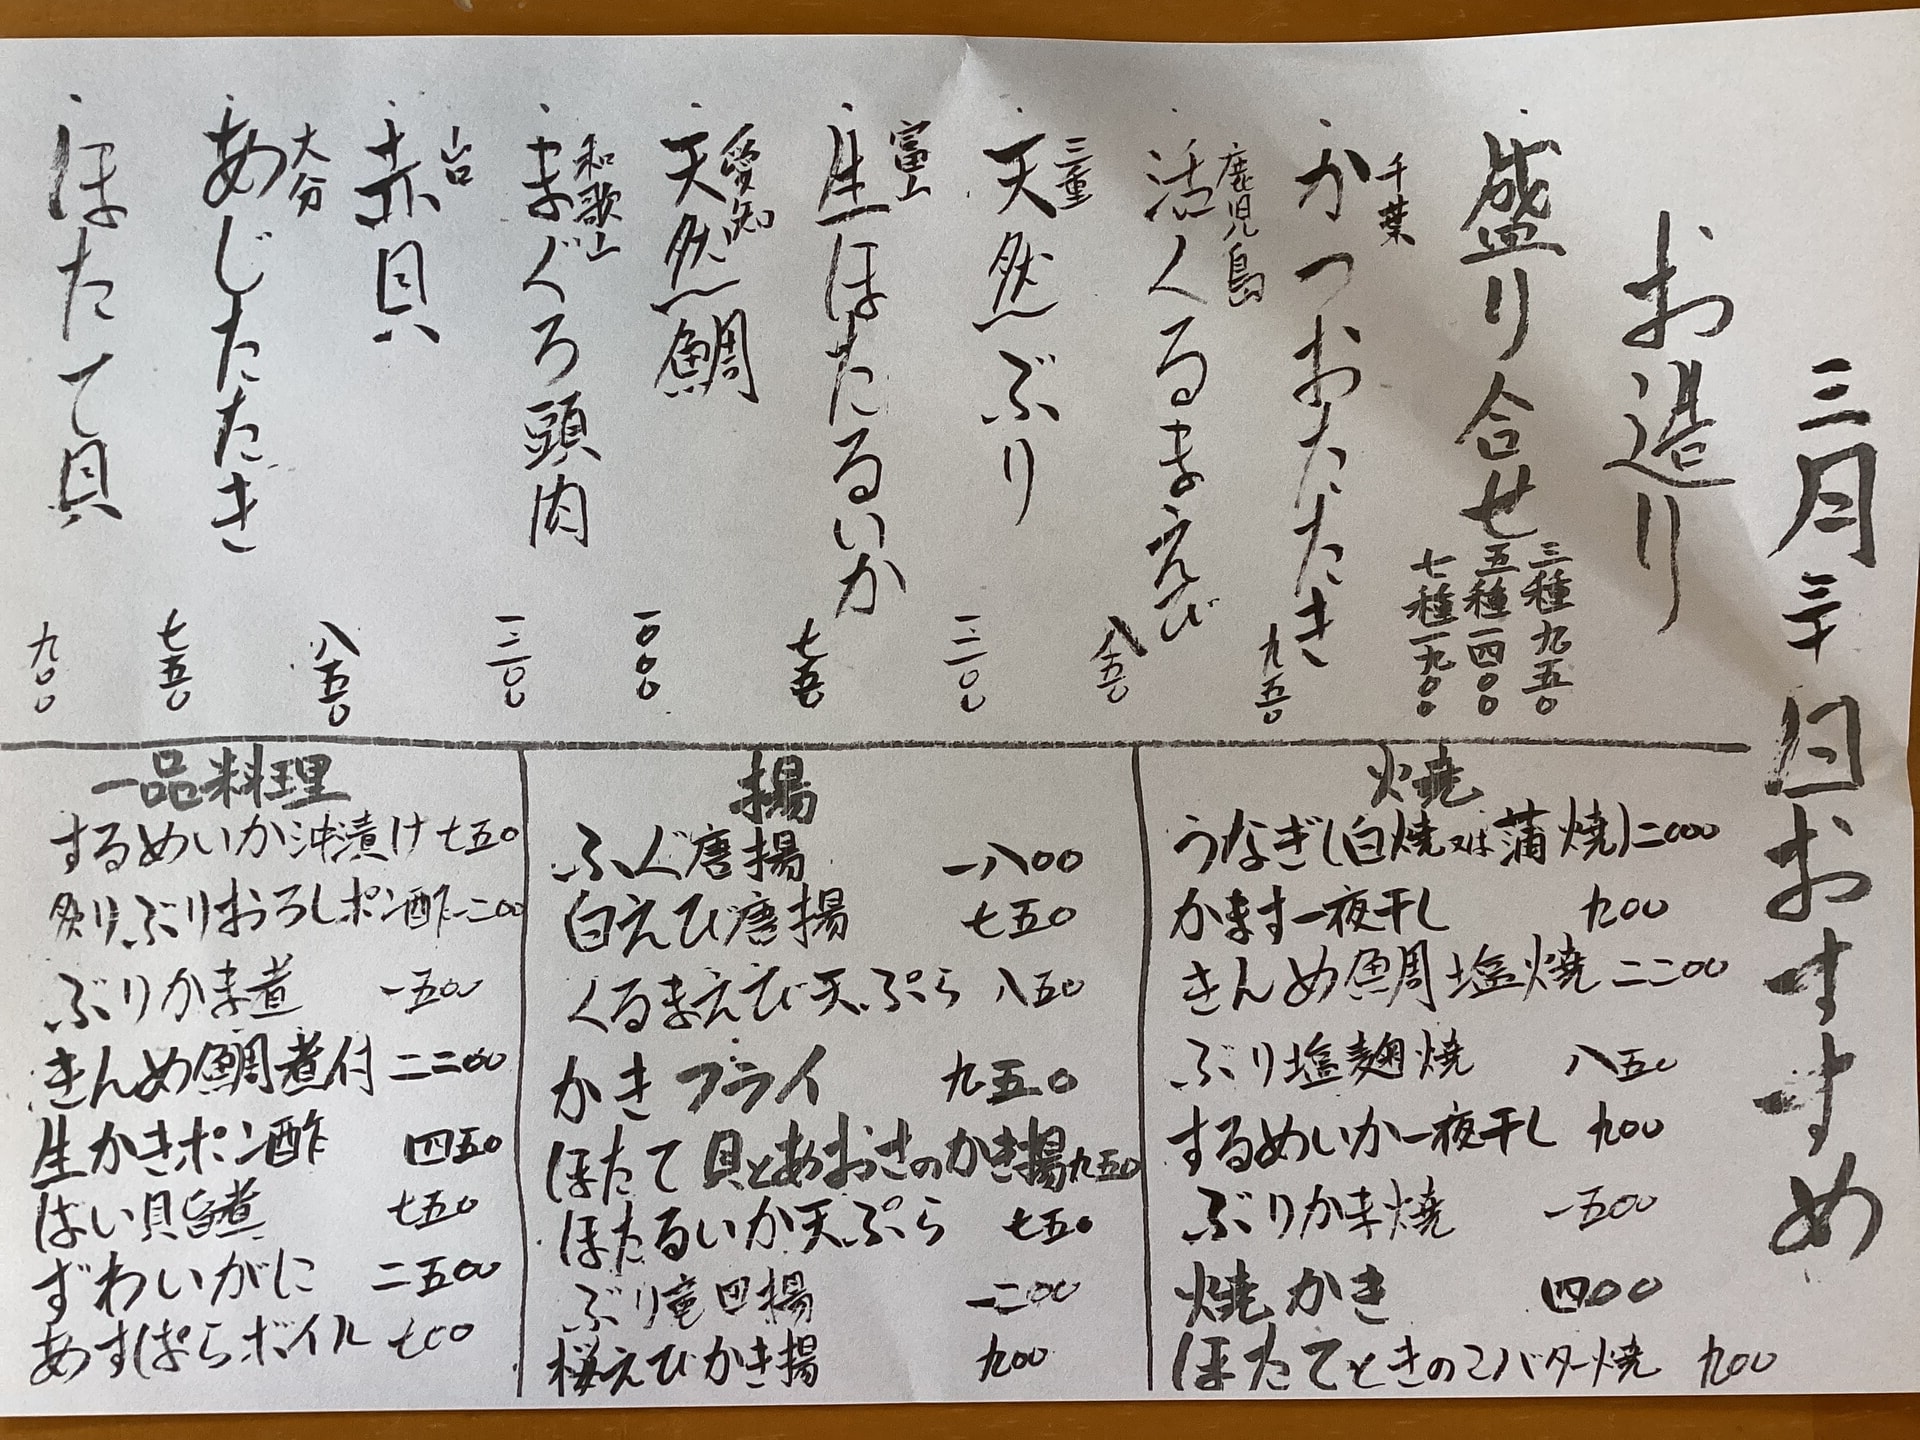 三月三十日おすすめ
お造り
・盛り合せ
三種九五〇
五種一四〇〇
七種一九〇〇
千葉
・かつおたたき 九五〇
鹿児島
・活くるまえび 八五〇
三重
・天然ぶり 一二〇〇
富山
・生ほたるいか 七五〇
愛知
・天然鯛 一〇〇〇
和歌山
・まぐろ頭肉 一二〇〇
・赤貝 八五〇
大分
・あじたたき 七五〇
・ほたて貝 九〇〇
焼
うなぎ(白焼又は蒲焼)二〇〇〇
かます一夜干し 九〇〇
きんめ鯛塩焼 二二〇〇
ぶり塩麹焼 八五〇
するめいか一夜干し 九〇〇
ぶりかま焼 一五〇〇
焼かき 四〇〇
ほたてときのこバター焼 九〇〇
揚
ふぐ唐揚 一八〇〇
白えび唐揚 七五〇
くるまえび天ぷら 八五〇
かきフライ 九五〇
ほたて貝とあおさのかき揚九五〇
ほたるいか天ぷら 七五〇
ぶり竜田揚 一二〇〇
桜えびかき揚 九〇〇
一品料理
するめいか沖漬け 七五〇
炙りぶりおろしポン酢一二〇〇
ぶりかま煮 一五〇〇
きんめ鯛煮付 二二〇〇
生かきポン酢 四五〇
ばい貝旨煮 七五〇
ずわいがに 二五〇〇
あすぱらボイル 七〇〇